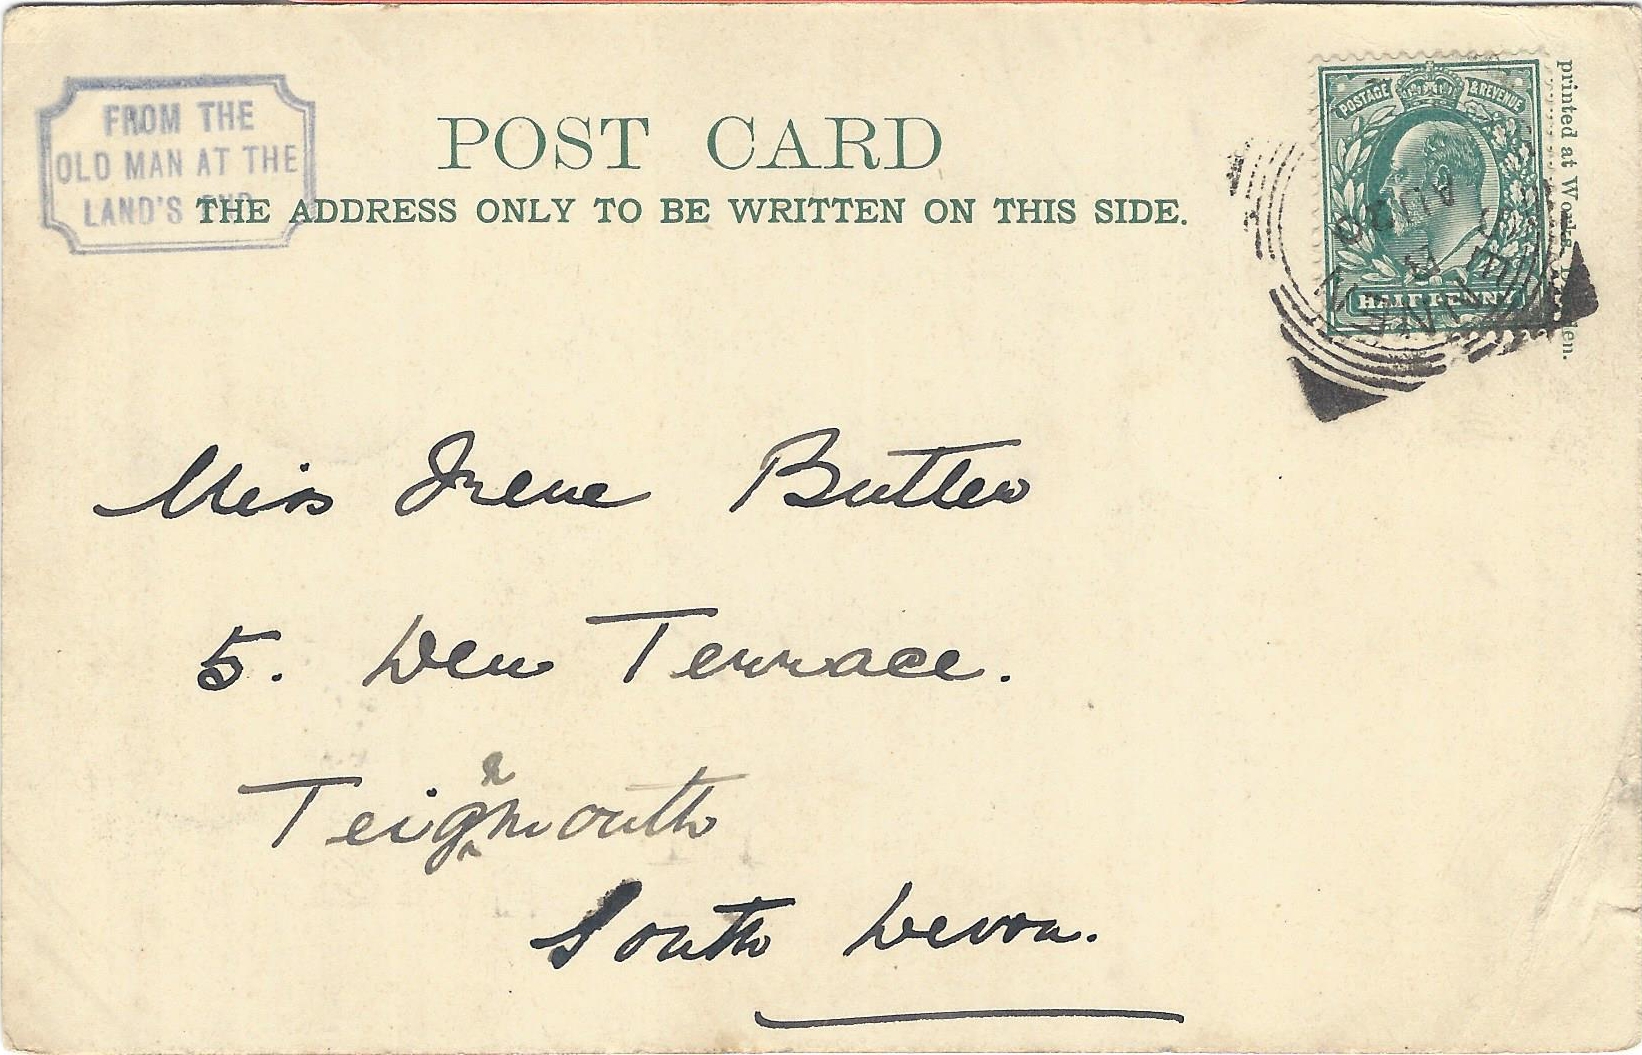 FROM THE
OLD MAN AT THE
LAND'S END
POST CARD
THE ADDRESS ONLY TO BE WRITTEN ON THIS SIDE.
POSTAGE & REVENUE
HALFPENNY
printed at Works,
Miss Irene Butler
5. Den Terrace.
Teignmouth
South Devon.